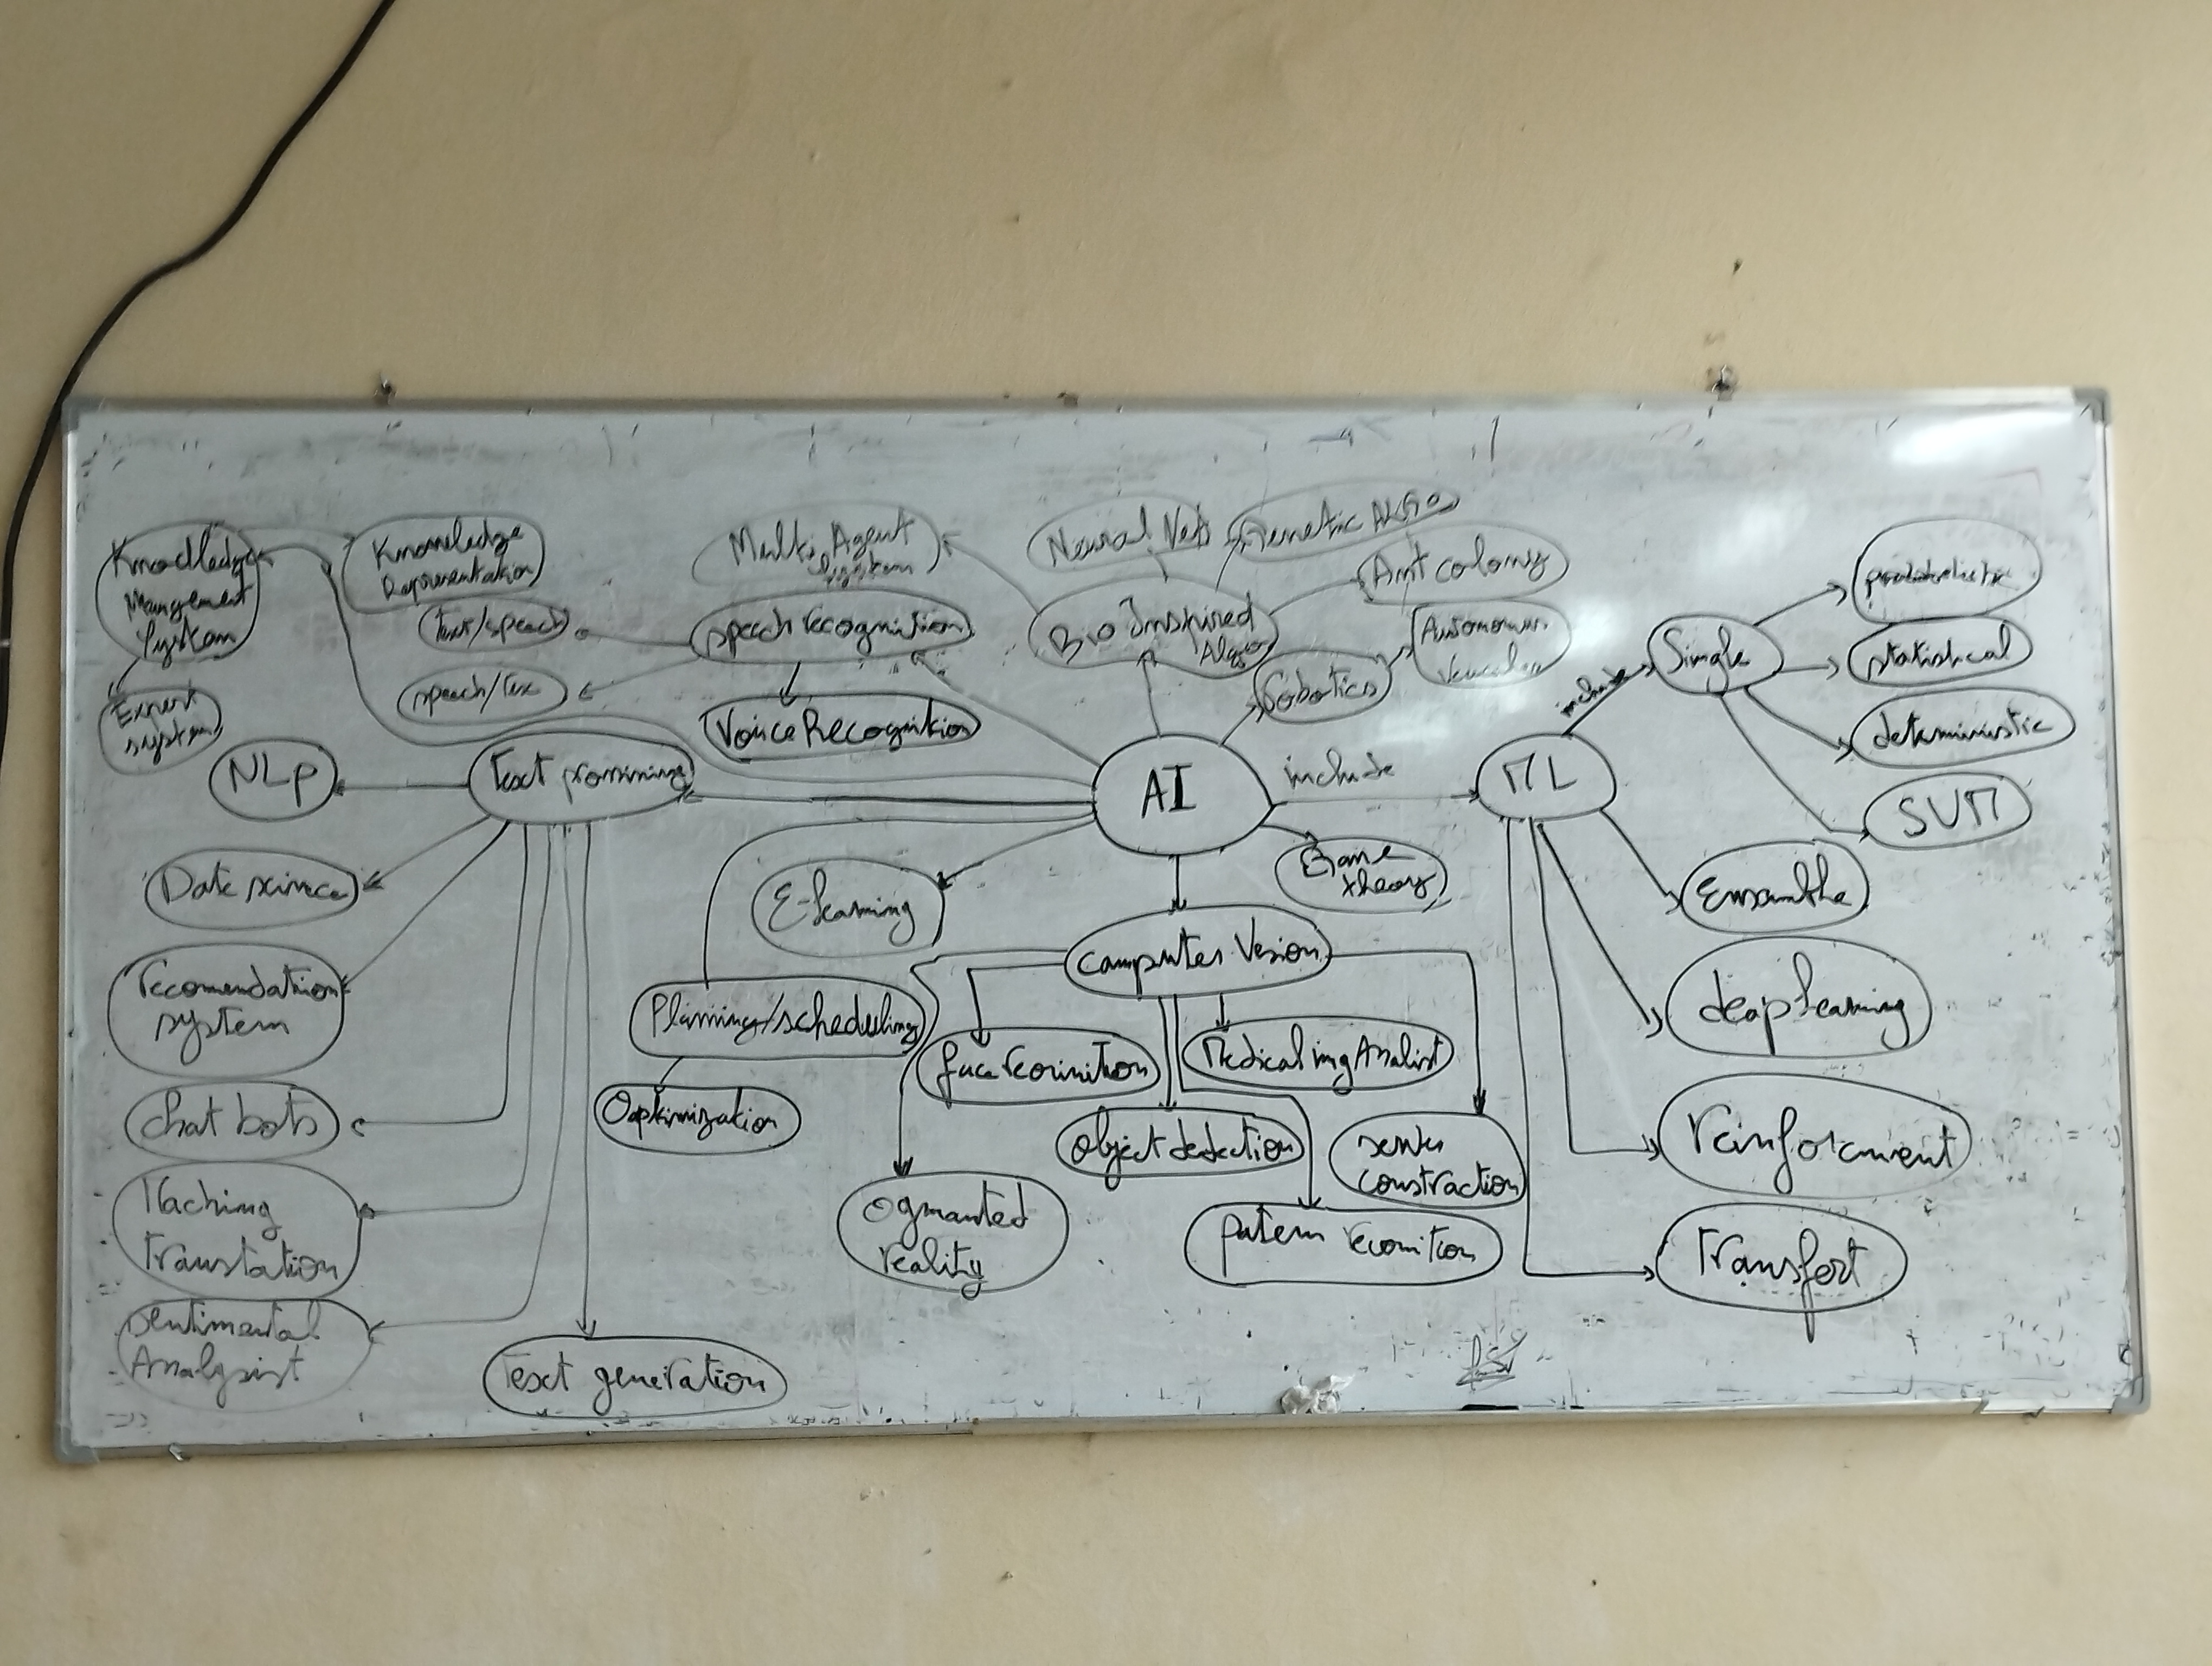 Knowledge
Mangement
System
Knowledge
Representation
Expert
system
Multi Agent
System
Text/speech
speech/Tex
speech recognition
Voice Recognition
Neural Net
Genetic ALGO
Ant colony
Bio Inspired
Algo
Robotics
include
Single
statistical
deterministic
SVM
NLP
Text
AI
include
ML
E-learning
Game
theory
Ensamble
recomendation
system
Planing/scheduling
Optimization
computer Vision
face recognition
Medical img Analist
object detection
constraction
patern recognition
Ogmanted
reality
deap learning
reinforcment
Transfert
chat bots
Maching
Translation
sentimental
Analysist
Text generation